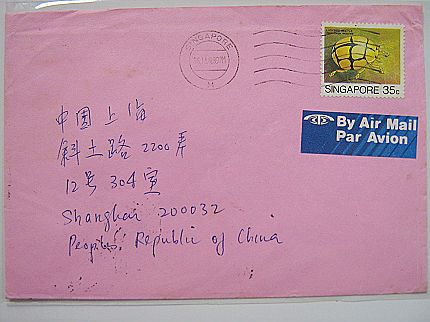 SINGAPORE
SINGAPORE 35c
By Air Mail
Par Avion
中国上海
斜土路 2200 弄
12号 304 室
Shanghai 200032
Peoples. Republic of China